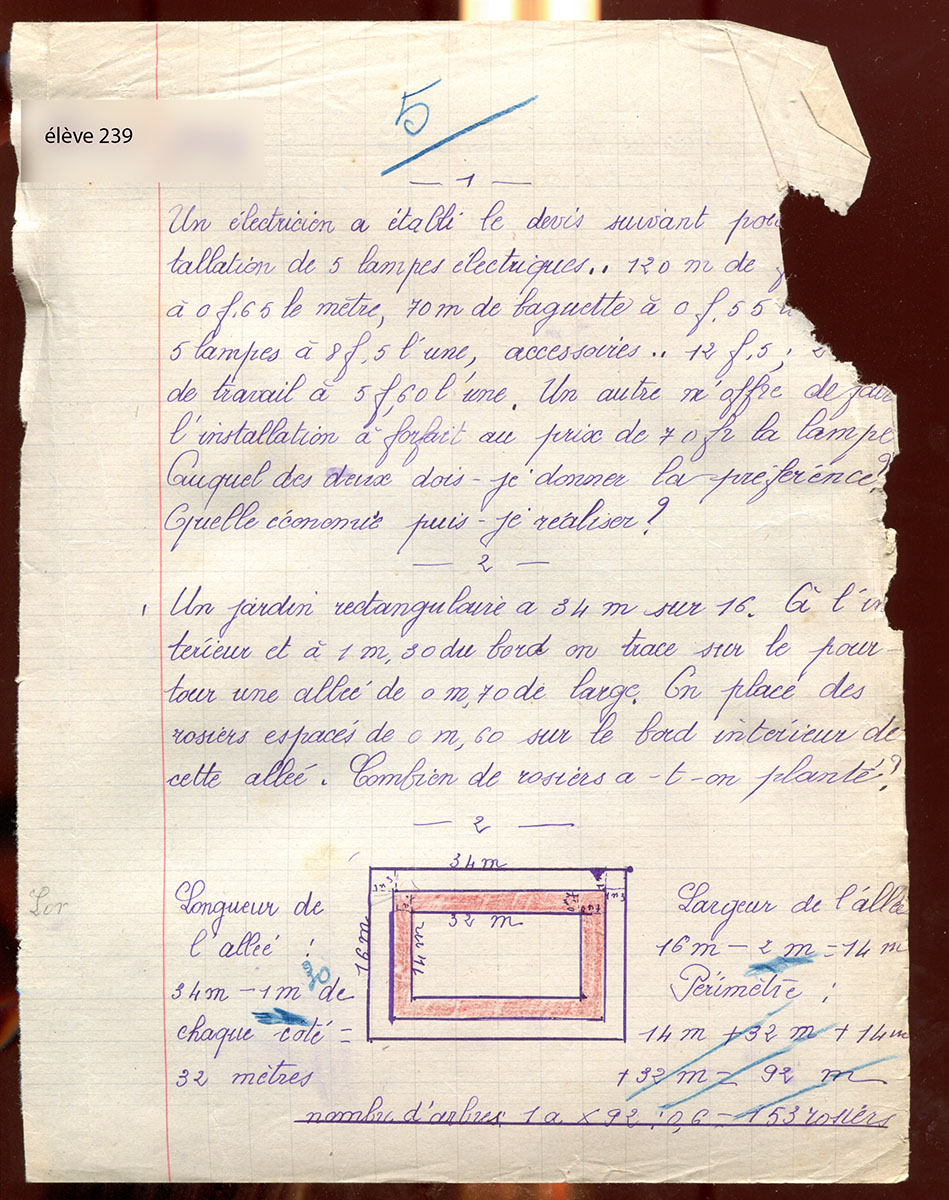 5
élève 239
— 1 —
Un électricien a établi le devis suivant pour
tallation de 5 lampes électriques.. 120 m de
à 0 f.65 le mètre, 70 m de baguette à 0 f. 55
5 lampes à 8 f. 5 l'une, accessoires .. 12 f. 5 ; 2
de travail à 5 f,60 l'une. Un autre m'offre de fair
l'installation à forfait au prix de 70 f la lampe
Auquel des deux dois-je donner la préférence?
Quelle économie puis-je réaliser?
— 2 —
Un jardin rectangulaire a 34 m sur 16. A l'in
térieur et à 1 m, 30 du bord on trace sur le pour-
tour une alleé de 0 m, 70 de large. On place des
rosiers espacés de 0 m, 60 sur le bord intérieur de
cette alleé. Combien de rosiers a-t-on planté?
— 2 —
34 m
16 m
32 m
14 m
Lor
Longueur de
l'alleé :
34m - 1m de
chaque coté =
32 mètres
Largeur de l'allé
16 m - 2 m = 14 m
Périmètre :
14 m + 32 m + 14 m
+ 32 m = 92 m
nombre d'arbres: 1a × 92 : 0,6 = 153 rosiers